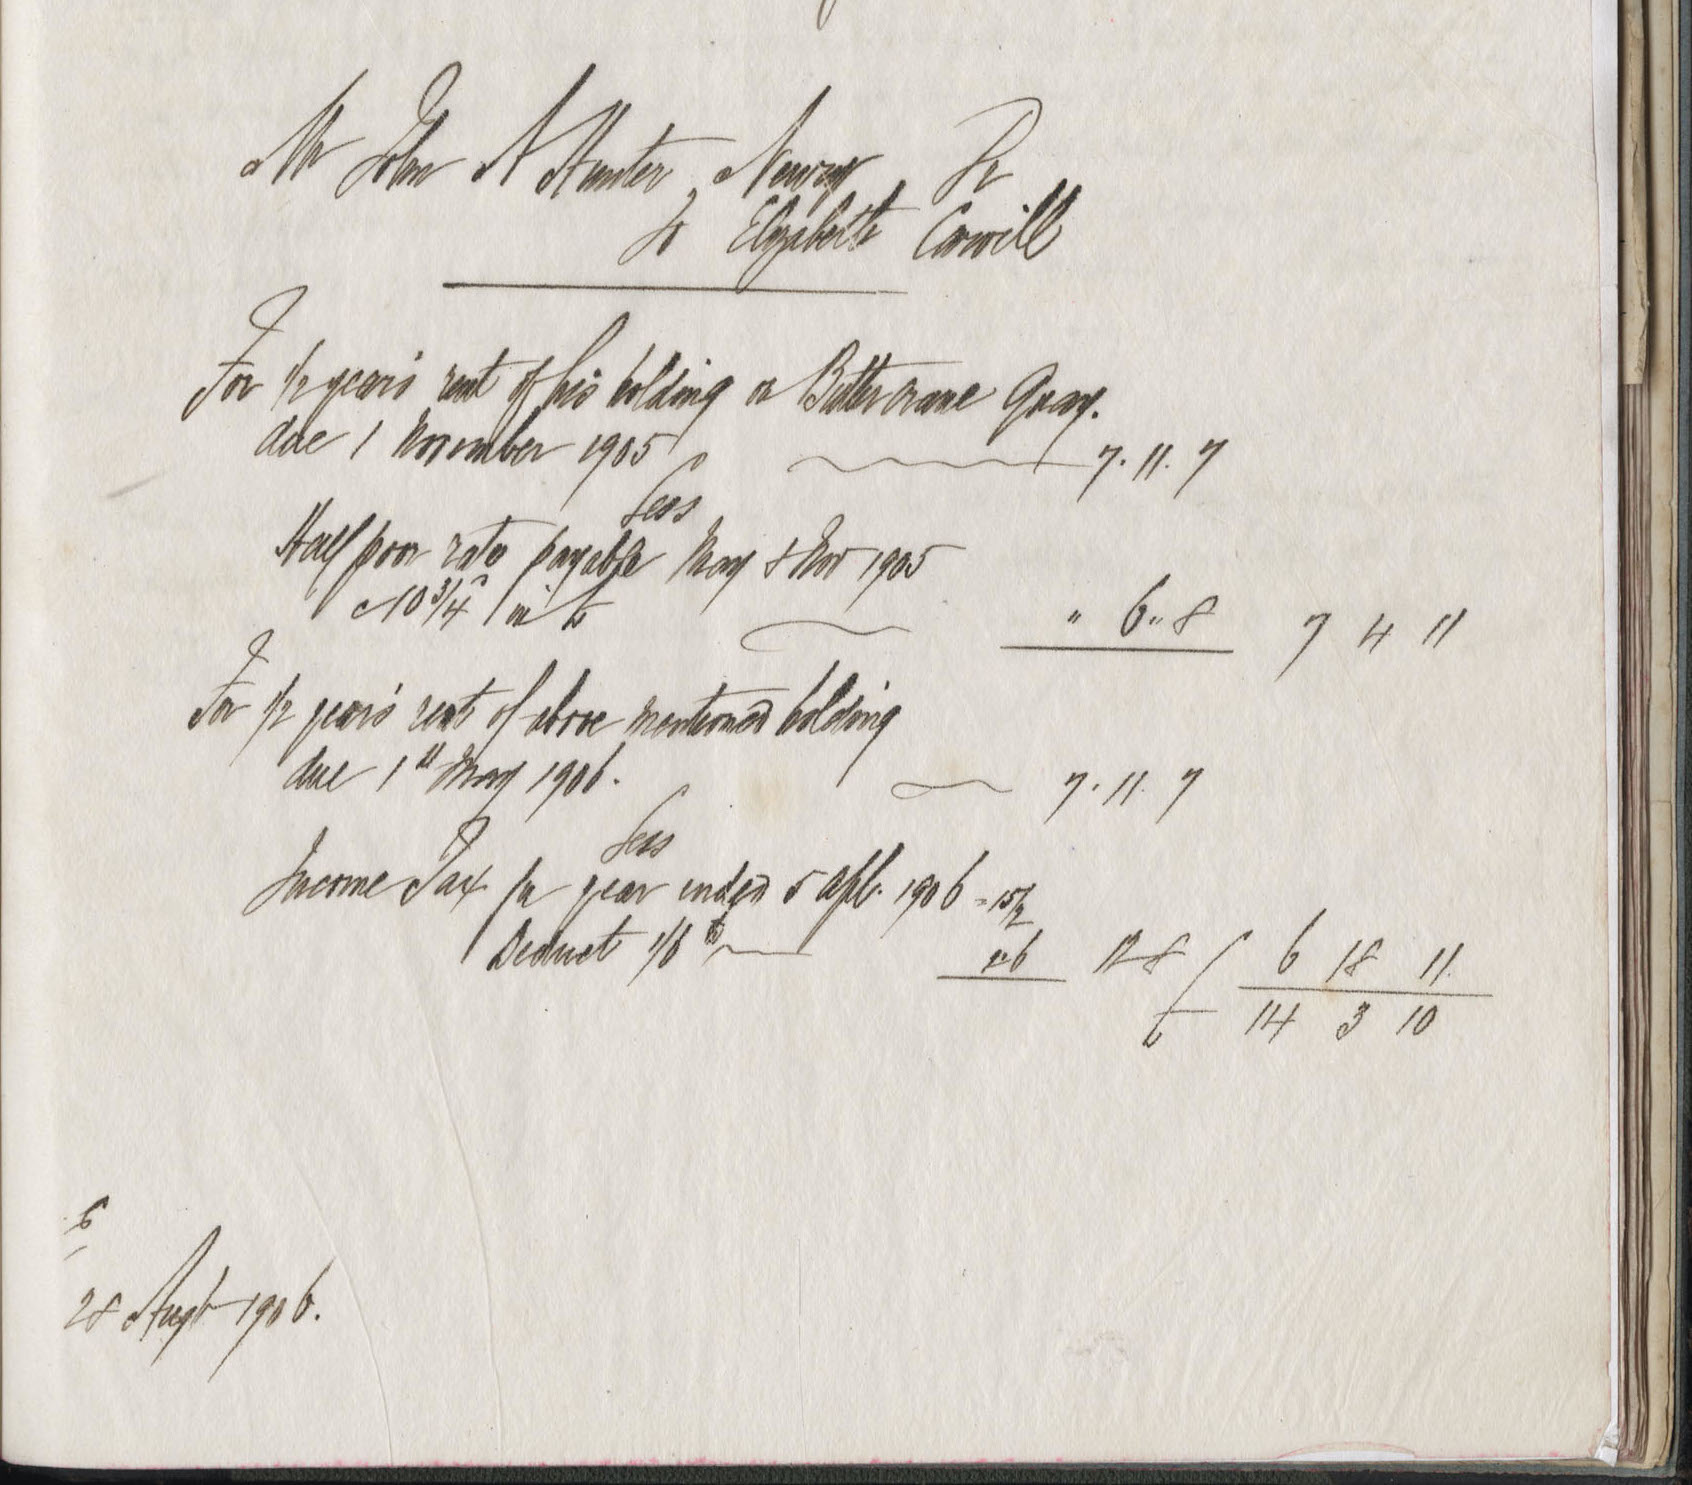 Mr John A Hunter, Newry Dr
To Elizabeth Carvill
For 1/2 year's rent of his holding on Buttercrane Quay.
due 1 November 1905 7. 11. 7
Less
Half poor rate payable May & Nov 1905
@ 10 3/4d in £ " 6 " 8 7 4 11
For 1/2 year's rent of above mentioned holding
due 1st May 1906. 7. 11. 7
Less
Income Tax for year ended 5 Apl. 1906 = 15/2
Deduct 1/6th 2.6 12 8 6 18 11
£ 14 3 10
28 Augt 1906.